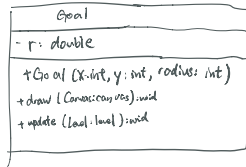 Goal
- r: double
+Goal (x:int, y:int, radius: int)
+draw (Canvas:canvas):void
+update (Level:level):void